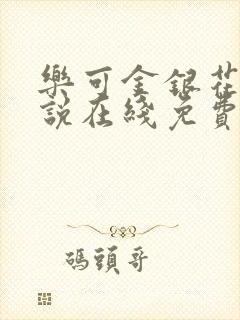 樂可金銀花
說在綫免費
碼頭哥